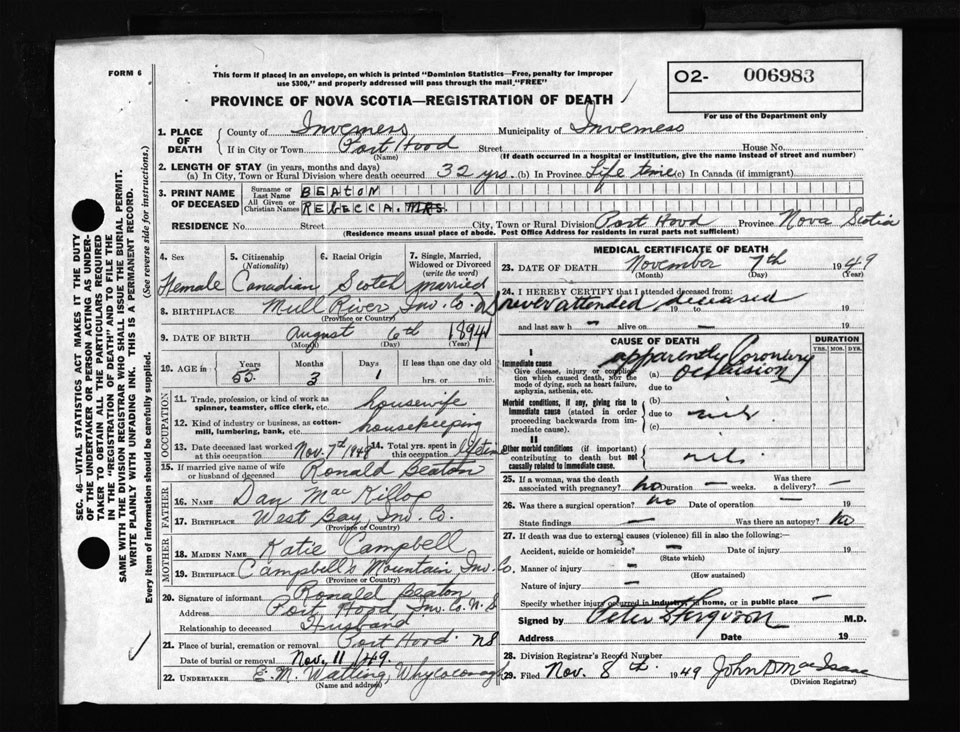 FORM 6
This form if placed in an envelope, on which is printed "Dominion Statistics—Free, penalty for improper
use $300," and properly addressed will pass through the mail "FREE"
O2- 006983
For use of the Department only
PROVINCE OF NOVA SCOTIA—REGISTRATION OF DEATH
1. PLACE OF DEATH { County of Inverness Municipality of Inverness
If in City or Town Port Hood Street House No.
(Name) (If death occurred in a hospital or institution, give the name instead of street and number)
2. LENGTH OF STAY (in years, months and days)
(a) In City, Town or Rural Division where death occurred 32 yrs. (b) In Province Life time (c) In Canada (if immigrant)
3. PRINT NAME OF DECEASED { Surname or Last Name BEATON
All Given or Christian Names REBECCA. MRS.
RESIDENCE No. Street City, Town or Rural Division Port Hood Province Nova Scotia
(Residence means usual place of abode. Post Office Address for residents in rural parts not sufficient)
4. Sex 5. Citizenship (Nationality) 6. Racial Origin 7. Single, Married, Widowed or Divorced (write the word)
Female Canadian Scotch married
8. BIRTHPLACE Mull River Inv. Co.
(Province or Country)
9. DATE OF BIRTH August 6th 1894
(Month) (Day) (Year)
10. AGE in { Years Months Days If less than one day old
55 3 1 hrs. or min.
OCCUPATION
11. Trade, profession, or kind of work as spinner, teamster, office clerk, etc. housewife
12. Kind of industry or business, as cotton-mill, lumbering, bank, etc. housekeeping
13. Date deceased last worked at this occupation Nov. 7th 1949 14. Total yrs. spent in this occupation lifetime
15. If married give name of wife or husband of deceased Ronald Beaton
FATHER
16. NAME Dan MacKillop
17. BIRTHPLACE West Bay Inv. Co.
(Province or Country)
MOTHER
18. MAIDEN NAME Katie Campbell
19. BIRTHPLACE Campbell's Mountain Inv. Co.
(Province or Country)
20. Signature of informant Ronald Beaton
Address Port Hood, Inv. Co. N.S
Relationship to deceased Husband
21. Place of burial, cremation or removal Port Hood NS
Date of burial or removal Nov. 11 /49.
22. UNDERTAKER E. M. Watling, Whycocomagh
(Name and address)
MEDICAL CERTIFICATE OF DEATH
23. DATE OF DEATH November 7th 1949
(Month) (Day) (Year)
24. I HEREBY CERTIFY that I attended deceased from:
never attended deceased
19 to 19
and last saw h — alive on — 19
CAUSE OF DEATH
DURATION
YRS. MOS. DYS.
I
Immediate cause
Give disease, injury or complication which caused death, not the mode of dying, such as heart failure, asphyxia, asthenia, etc.
(a) apparently Coronary Occlusion
due to
Morbid conditions, if any, giving rise to immediate cause (stated in order proceeding backwards from immediate cause).
(b)
due to nil
(c)
II
Other morbid conditions (if important) contributing to death but not causally related to immediate cause. nil
25. If a woman, was the death associated with pregnancy? no Duration — weeks. Was there a delivery? —
26. Was there a surgical operation? no Date of operation — 19
State findings — Was there an autopsy? No
27. If death was due to external causes (violence) fill in also the following:—
Accident, suicide or homicide? — Date of injury 19
(State which)
Manner of injury —
(How sustained)
Nature of injury —
Specify whether injury occurred in industry, in home, or in public place —
Signed by Peter S Ferguson M.D.
Address Date 19
28. Division Registrar's Record Number
29. Filed Nov. 8th 1949 John D MacIsaac
(Division Registrar)
SEC. 46—VITAL STATISTICS ACT MAKES IT THE DUTY
OF THE UNDERTAKER OR PERSON ACTING AS UNDERTAKER
TO OBTAIN ALL THE PARTICULARS REQUIRED
IN THE "REGISTRATION OF DEATH" AND TO FILE THE
SAME WITH THE DIVISION REGISTRAR WHO SHALL ISSUE THE BURIAL PERMIT.
WRITE PLAINLY WITH UNFADING INK. THIS IS A PERMANENT RECORD.
Every item of information should be carefully supplied. (See reverse side for instructions.)